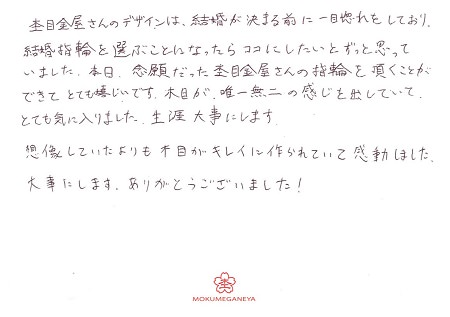 杢目金屋さんのデザインは、結婚が決まる前に一目惚れをしており、
結婚指輪を選ぶことになったらココにしたいとずっと思って
いました。本日、念願だった杢目金屋さんの指輪を頂くことが
できてとても嬉しいです。木目が、唯一無二の感じを出していて、
とても気に入りました。生涯大事にします。
想像していたよりも木目がキレイに作られていて感動しました。
大事にします。ありがとうございました!
MOKUMEGANEYA